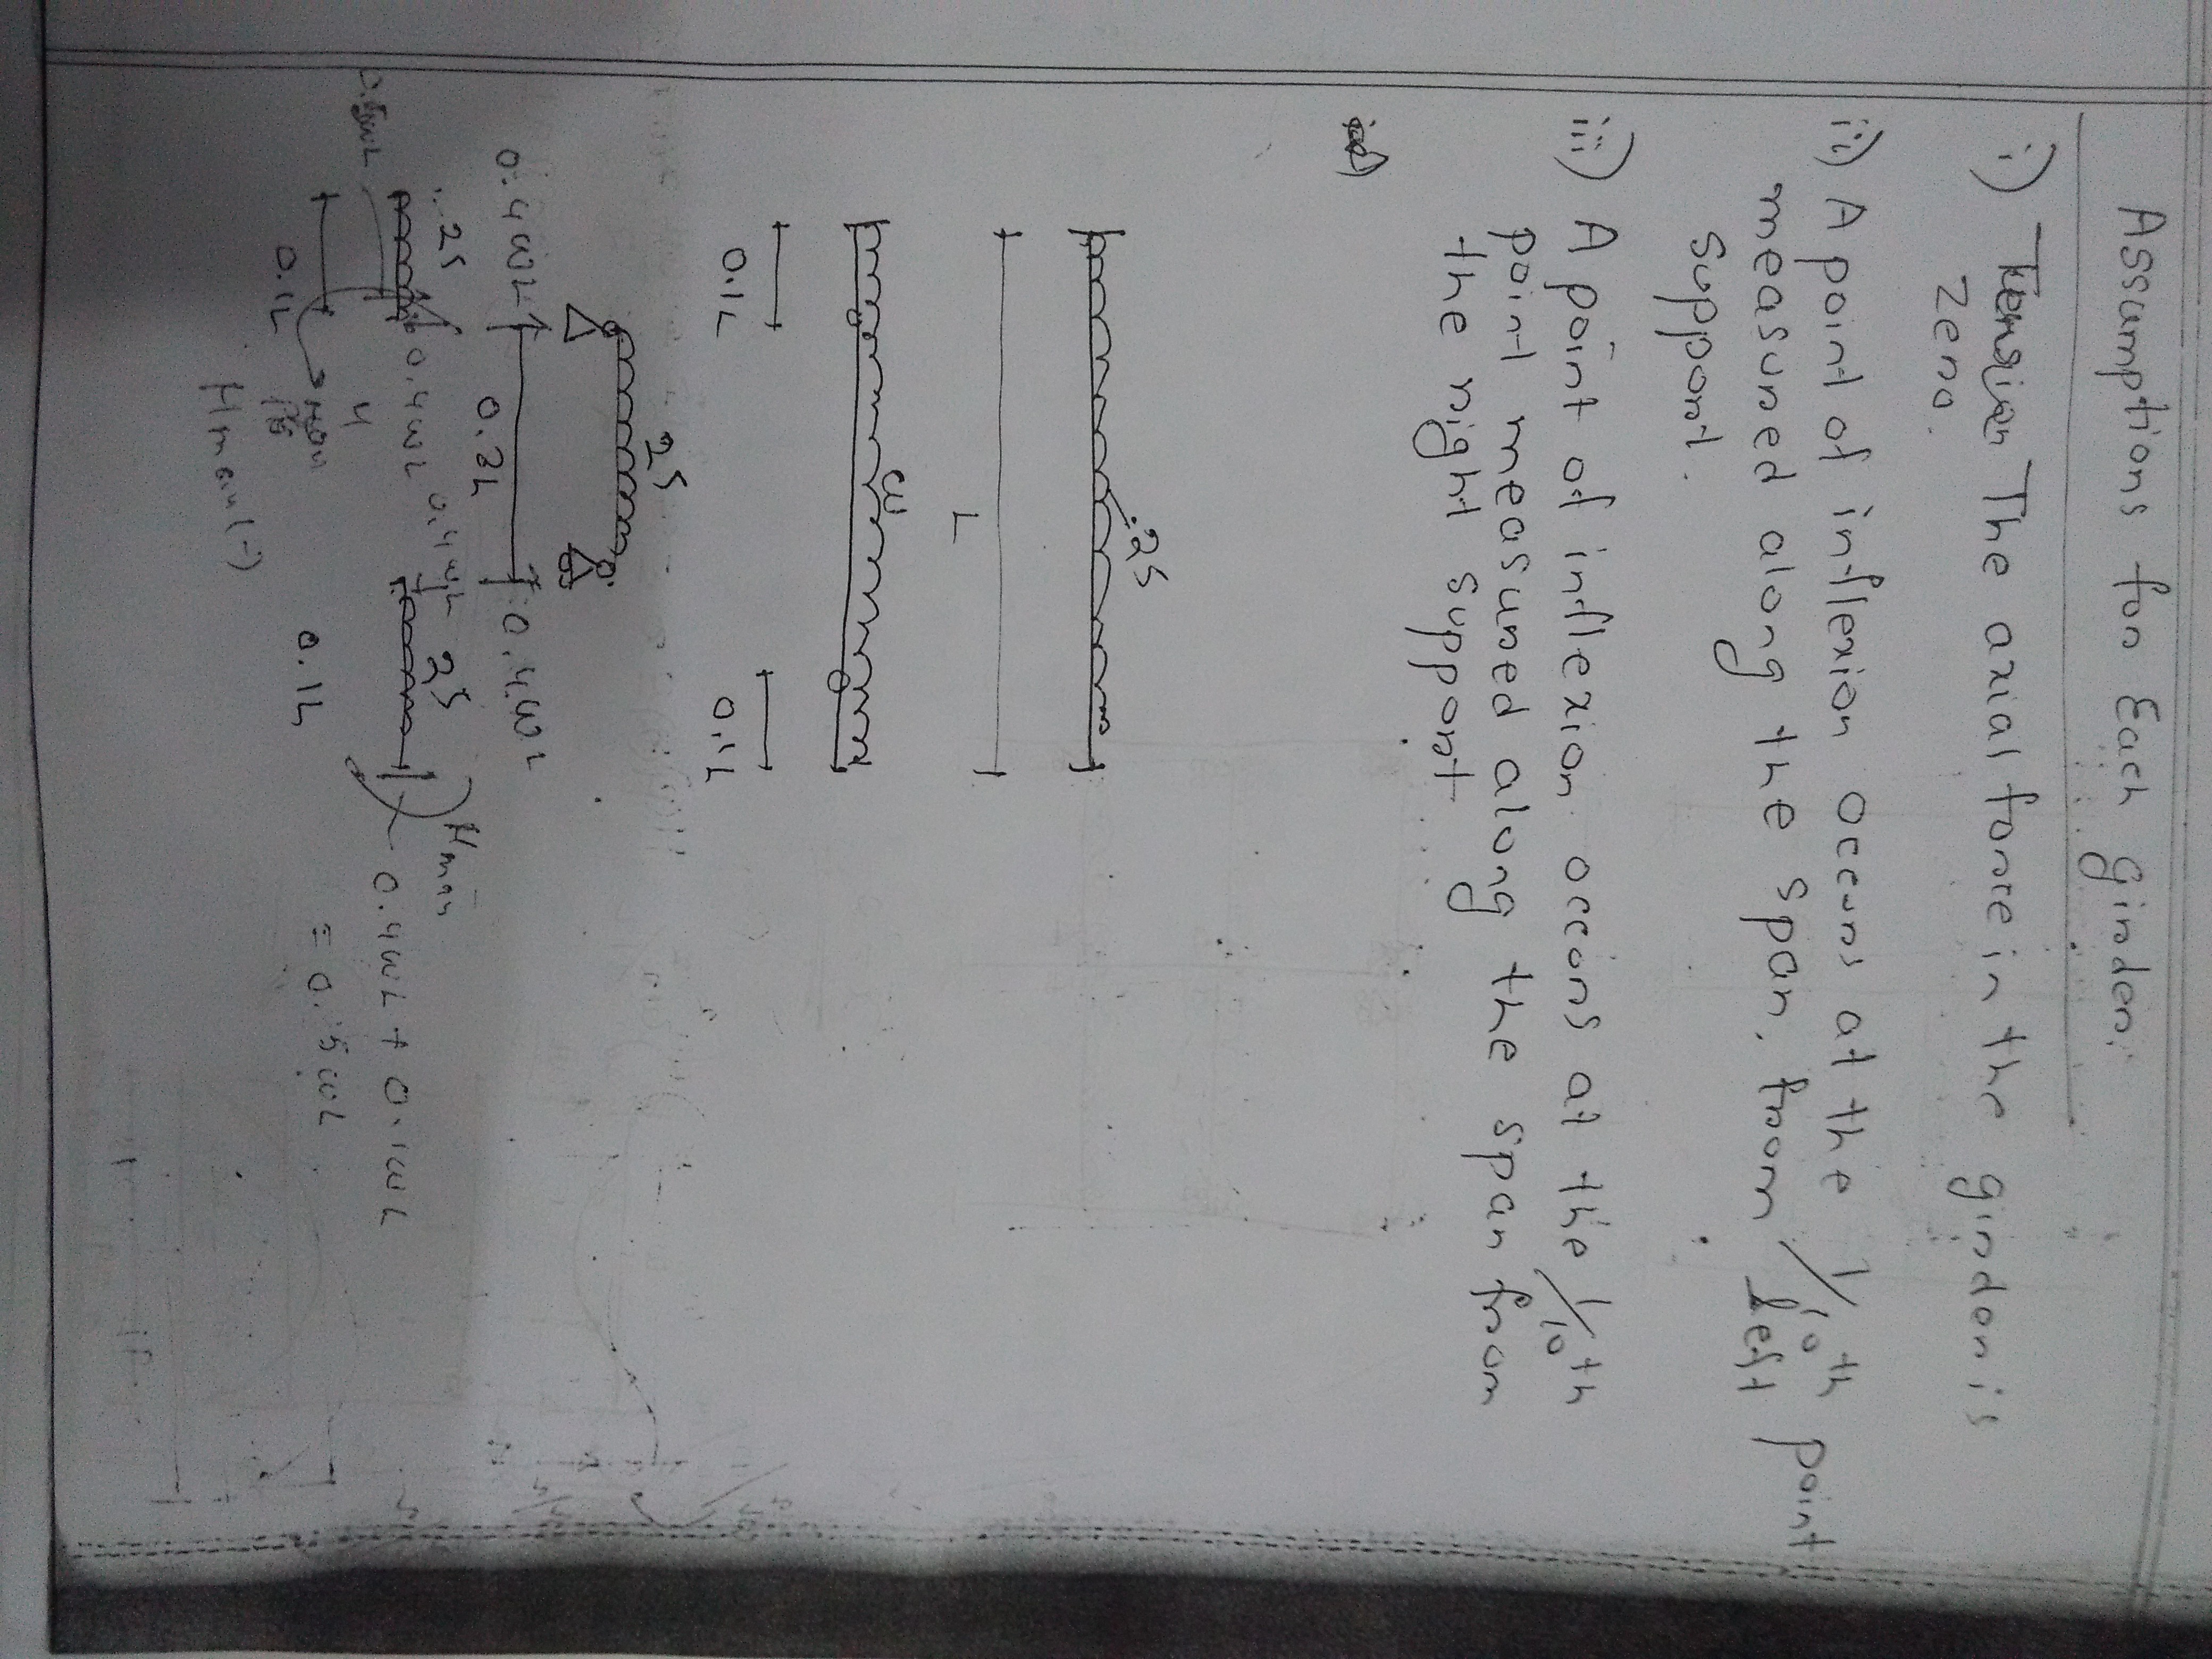 Assumptions for Each girder:
i) The axial force in the girder is
zero.
ii) A point of inflexion occurs at the 1/10 th point
measured along the span, from left
support.
iii) A point of inflexion occurs at the 1/10 th
point measured along the span from
the right support
L
0.1L
0.1L
0.4wL
0.4wL
0.4wL
0.4wL
0.1L
0.1L
0.4wL + 0.1wL
= 0.5wL